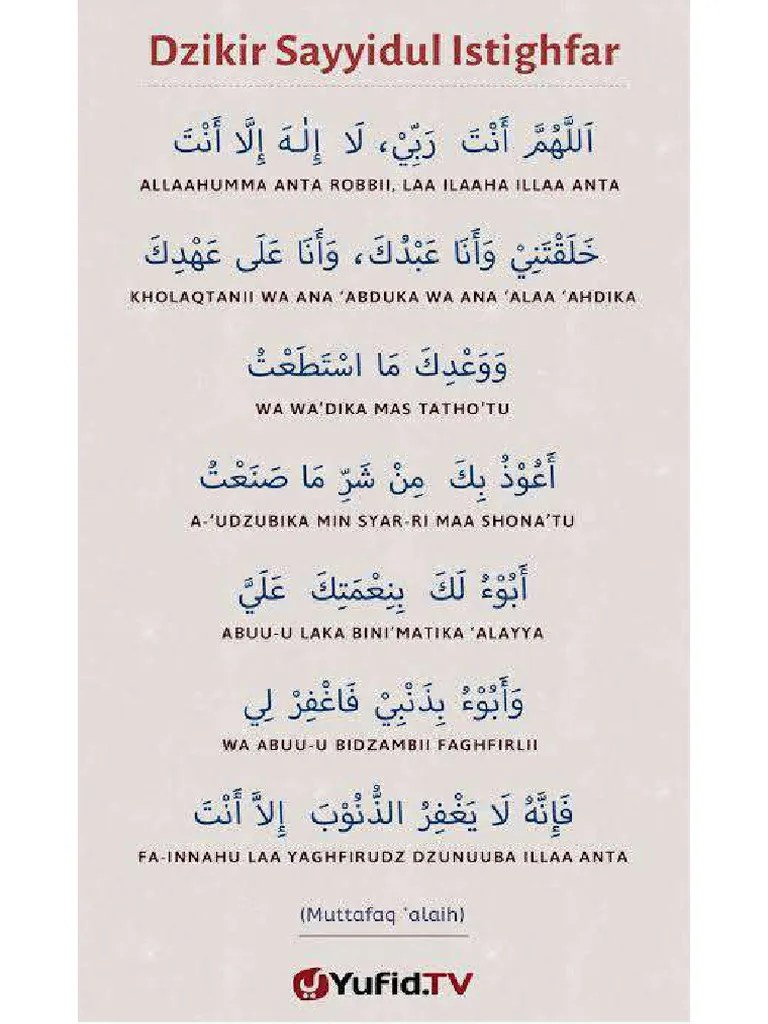 Dzikir Sayyidul Istighfar
اَللَّهُمَّ أَنْتَ رَبِّيْ، لَا إِلٰـهَ إِلَّا أَنْتَ
ALLAAHUMMA ANTA ROBBII, LAA ILAAHA ILLAA ANTA
خَلَقْتَنِيْ وَأَنَا عَبْدُكَ، وَأَنَا عَلَى عَهْدِكَ
KHOLAQTANII WA ANA ‘ABDUKA WA ANA ‘ALAA ‘AHDIKA
وَوَعْدِكَ مَا اسْتَطَعْتُ
WA WA’DIKA MAS TATHO’TU
أَعُوْذُ بِكَ مِنْ شَرِّ مَا صَنَعْتُ
A-‘UDZUBIKA MIN SYAR-RI MAA SHONA’TU
أَبُوْءُ لَكَ بِنِعْمَتِكَ عَلَيَّ
ABUU-U LAKA BINI’MATIKA ‘ALAYYA
وَأَبُوْءُ بِذَنْبِيْ فَاغْفِرْ لِي
WA ABUU-U BIDZAMBII FAGHFIRLII
فَإِنَّهُ لَا يَغْفِرُ الذُّنُوْبَ إِلاَّ أَنْتَ
FA-INNAHU LAA YAGHFIRUDZ DZUNUUBA ILLAA ANTA
(Muttafaq ‘alaih)
YUFID.TV